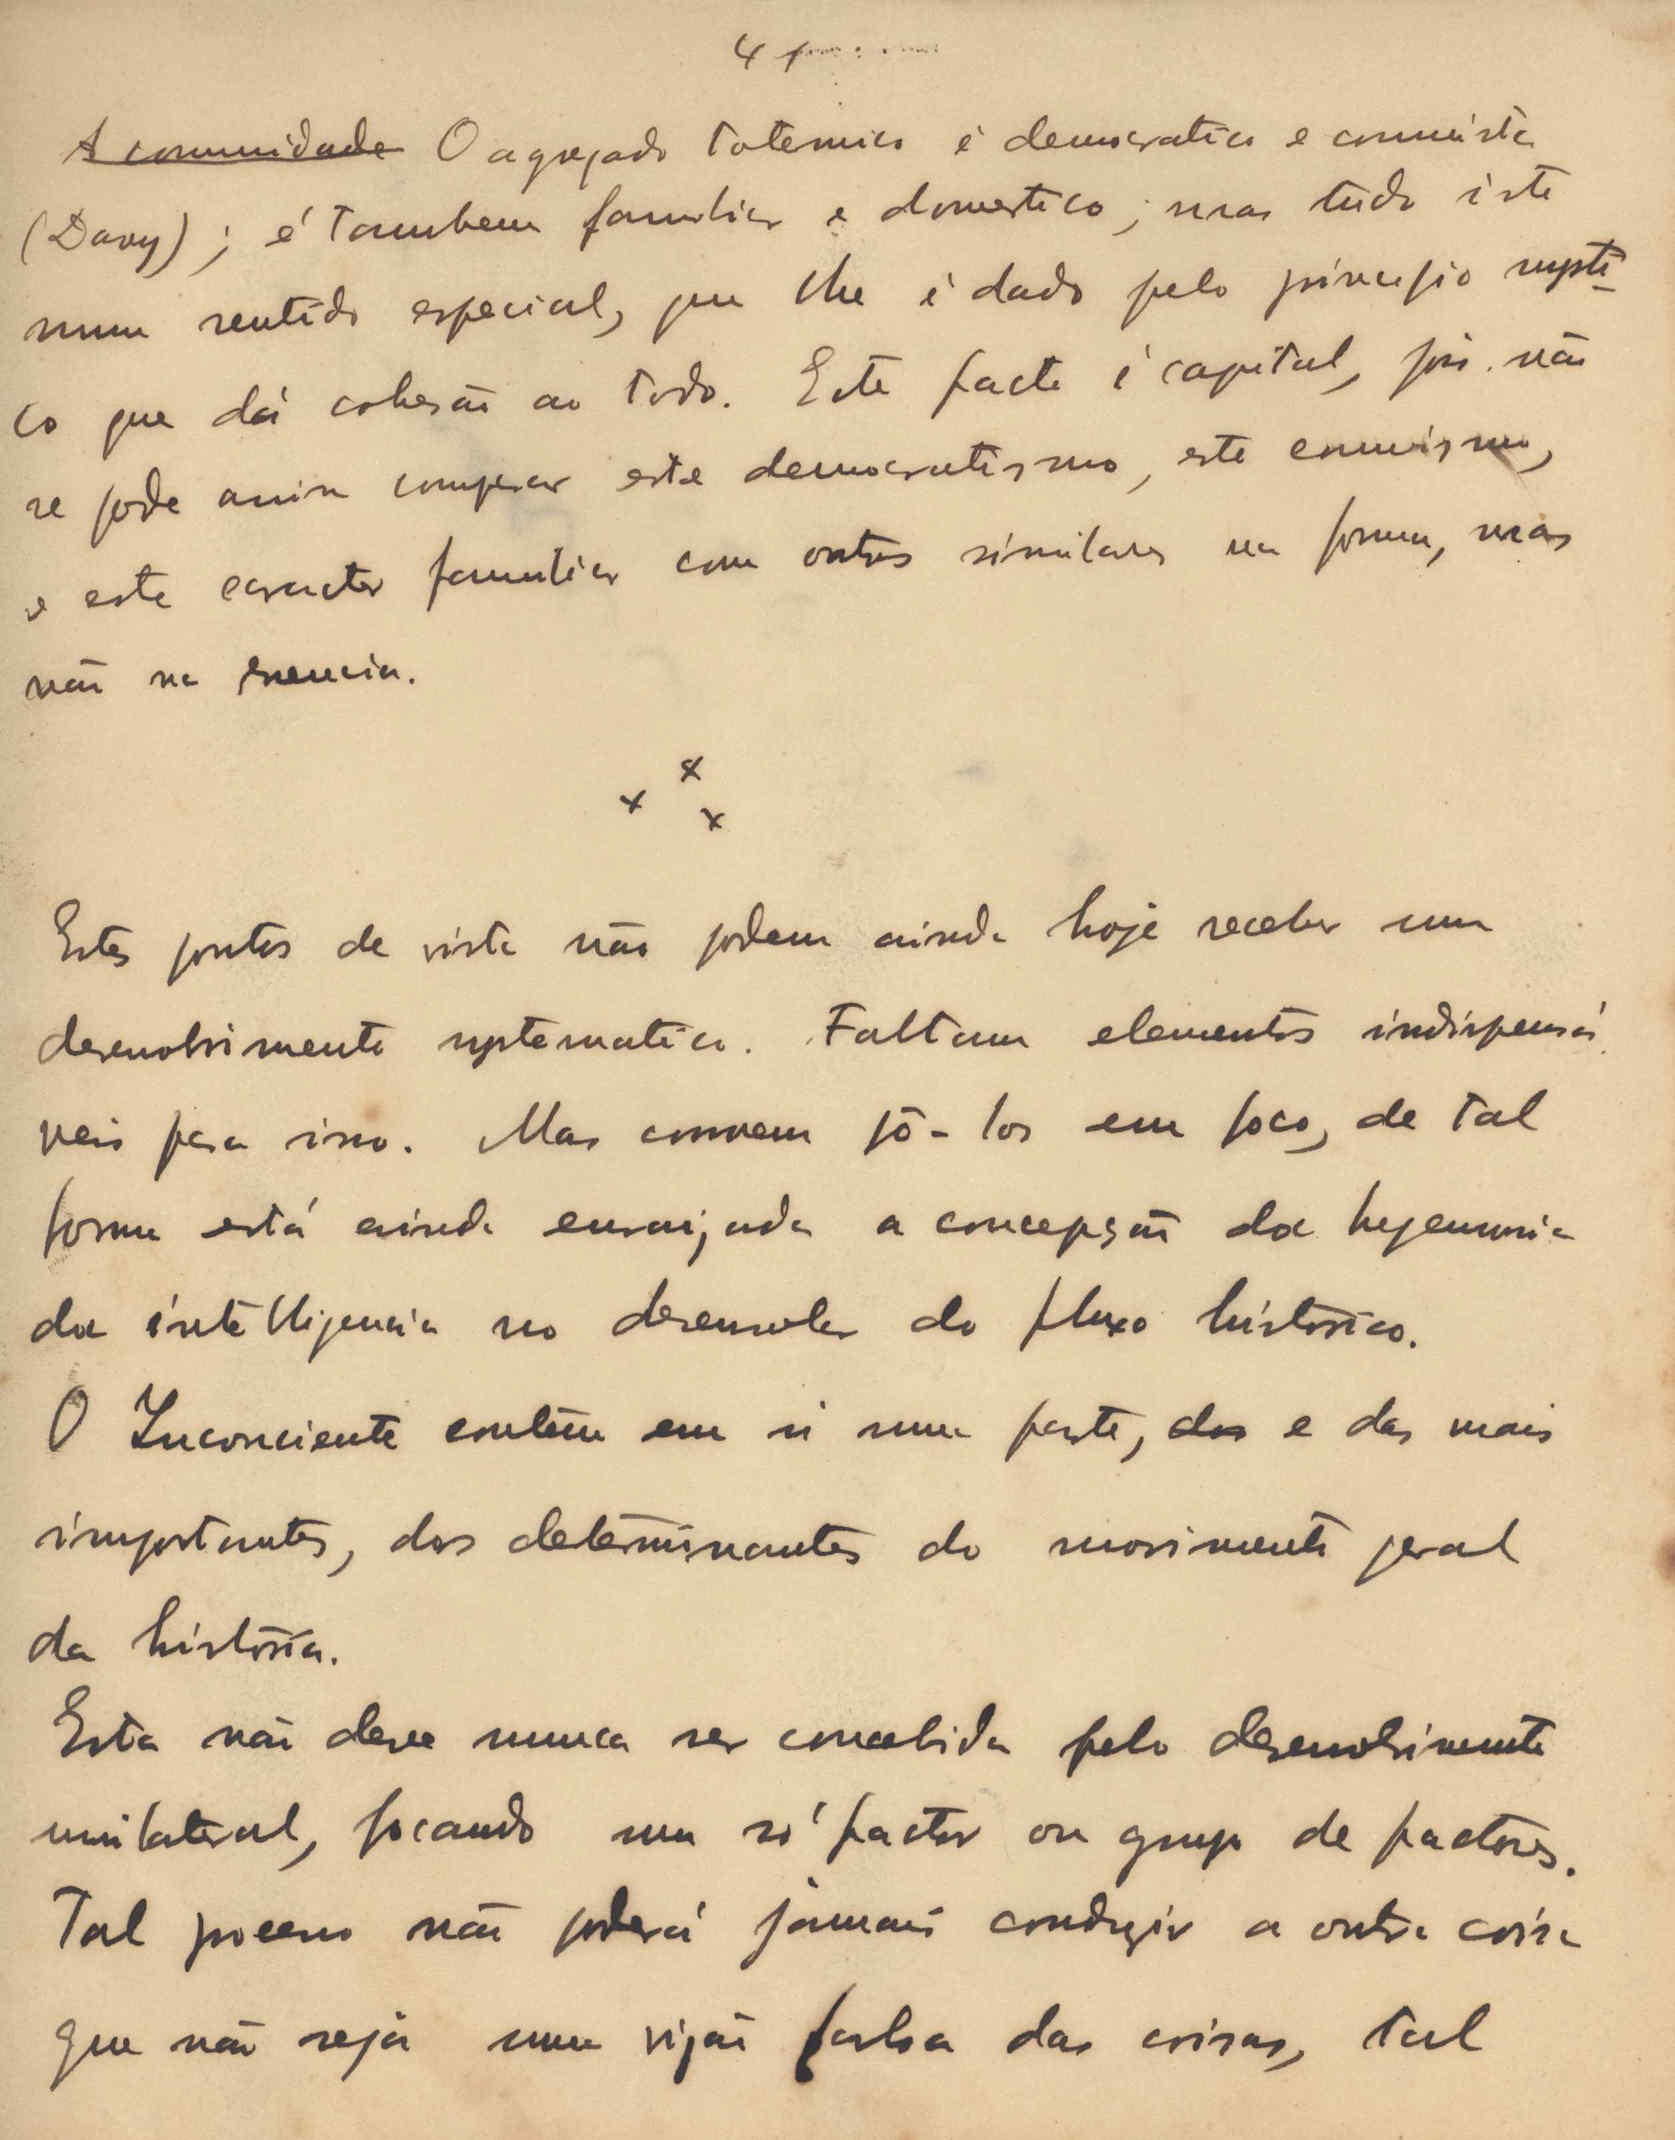 4
A comunidade O agregado totemico é democratico e comunista
(Davy) ; é tambem familiar e domestico ; mas tudo isto
num sentido especial, que lhe é dado pelo principio mysti-
co que dá cohesão ao todo. Este facto é capital, pois não
se pode assim comparar este democratismo, este comunismo,
e este caracter familiar com outros similares na forma, mas
não na essencia.
x x x
Estes pontos de vista não podem ainda hoje receber um
desenvolvimento systematico. Faltam elementos indispensá
veis para isso. Mas convem pô-los em foco, de tal
forma está ainda enraizada a concepção da hegemonia
da intelligencia no desenvolver do fluxo histórico.
O Inconciente contêm em si uma parte, das e das mais
importantes, dos determinantes do movimento geral
da história.
Esta não deve nunca ser concebida pelo desenvolvimento
unilateral, focando um só factor ou grupo de factores.
Tal processo não poderá jamais conduzir a outra coisa
que não seja uma visão falsa das coisas, tal